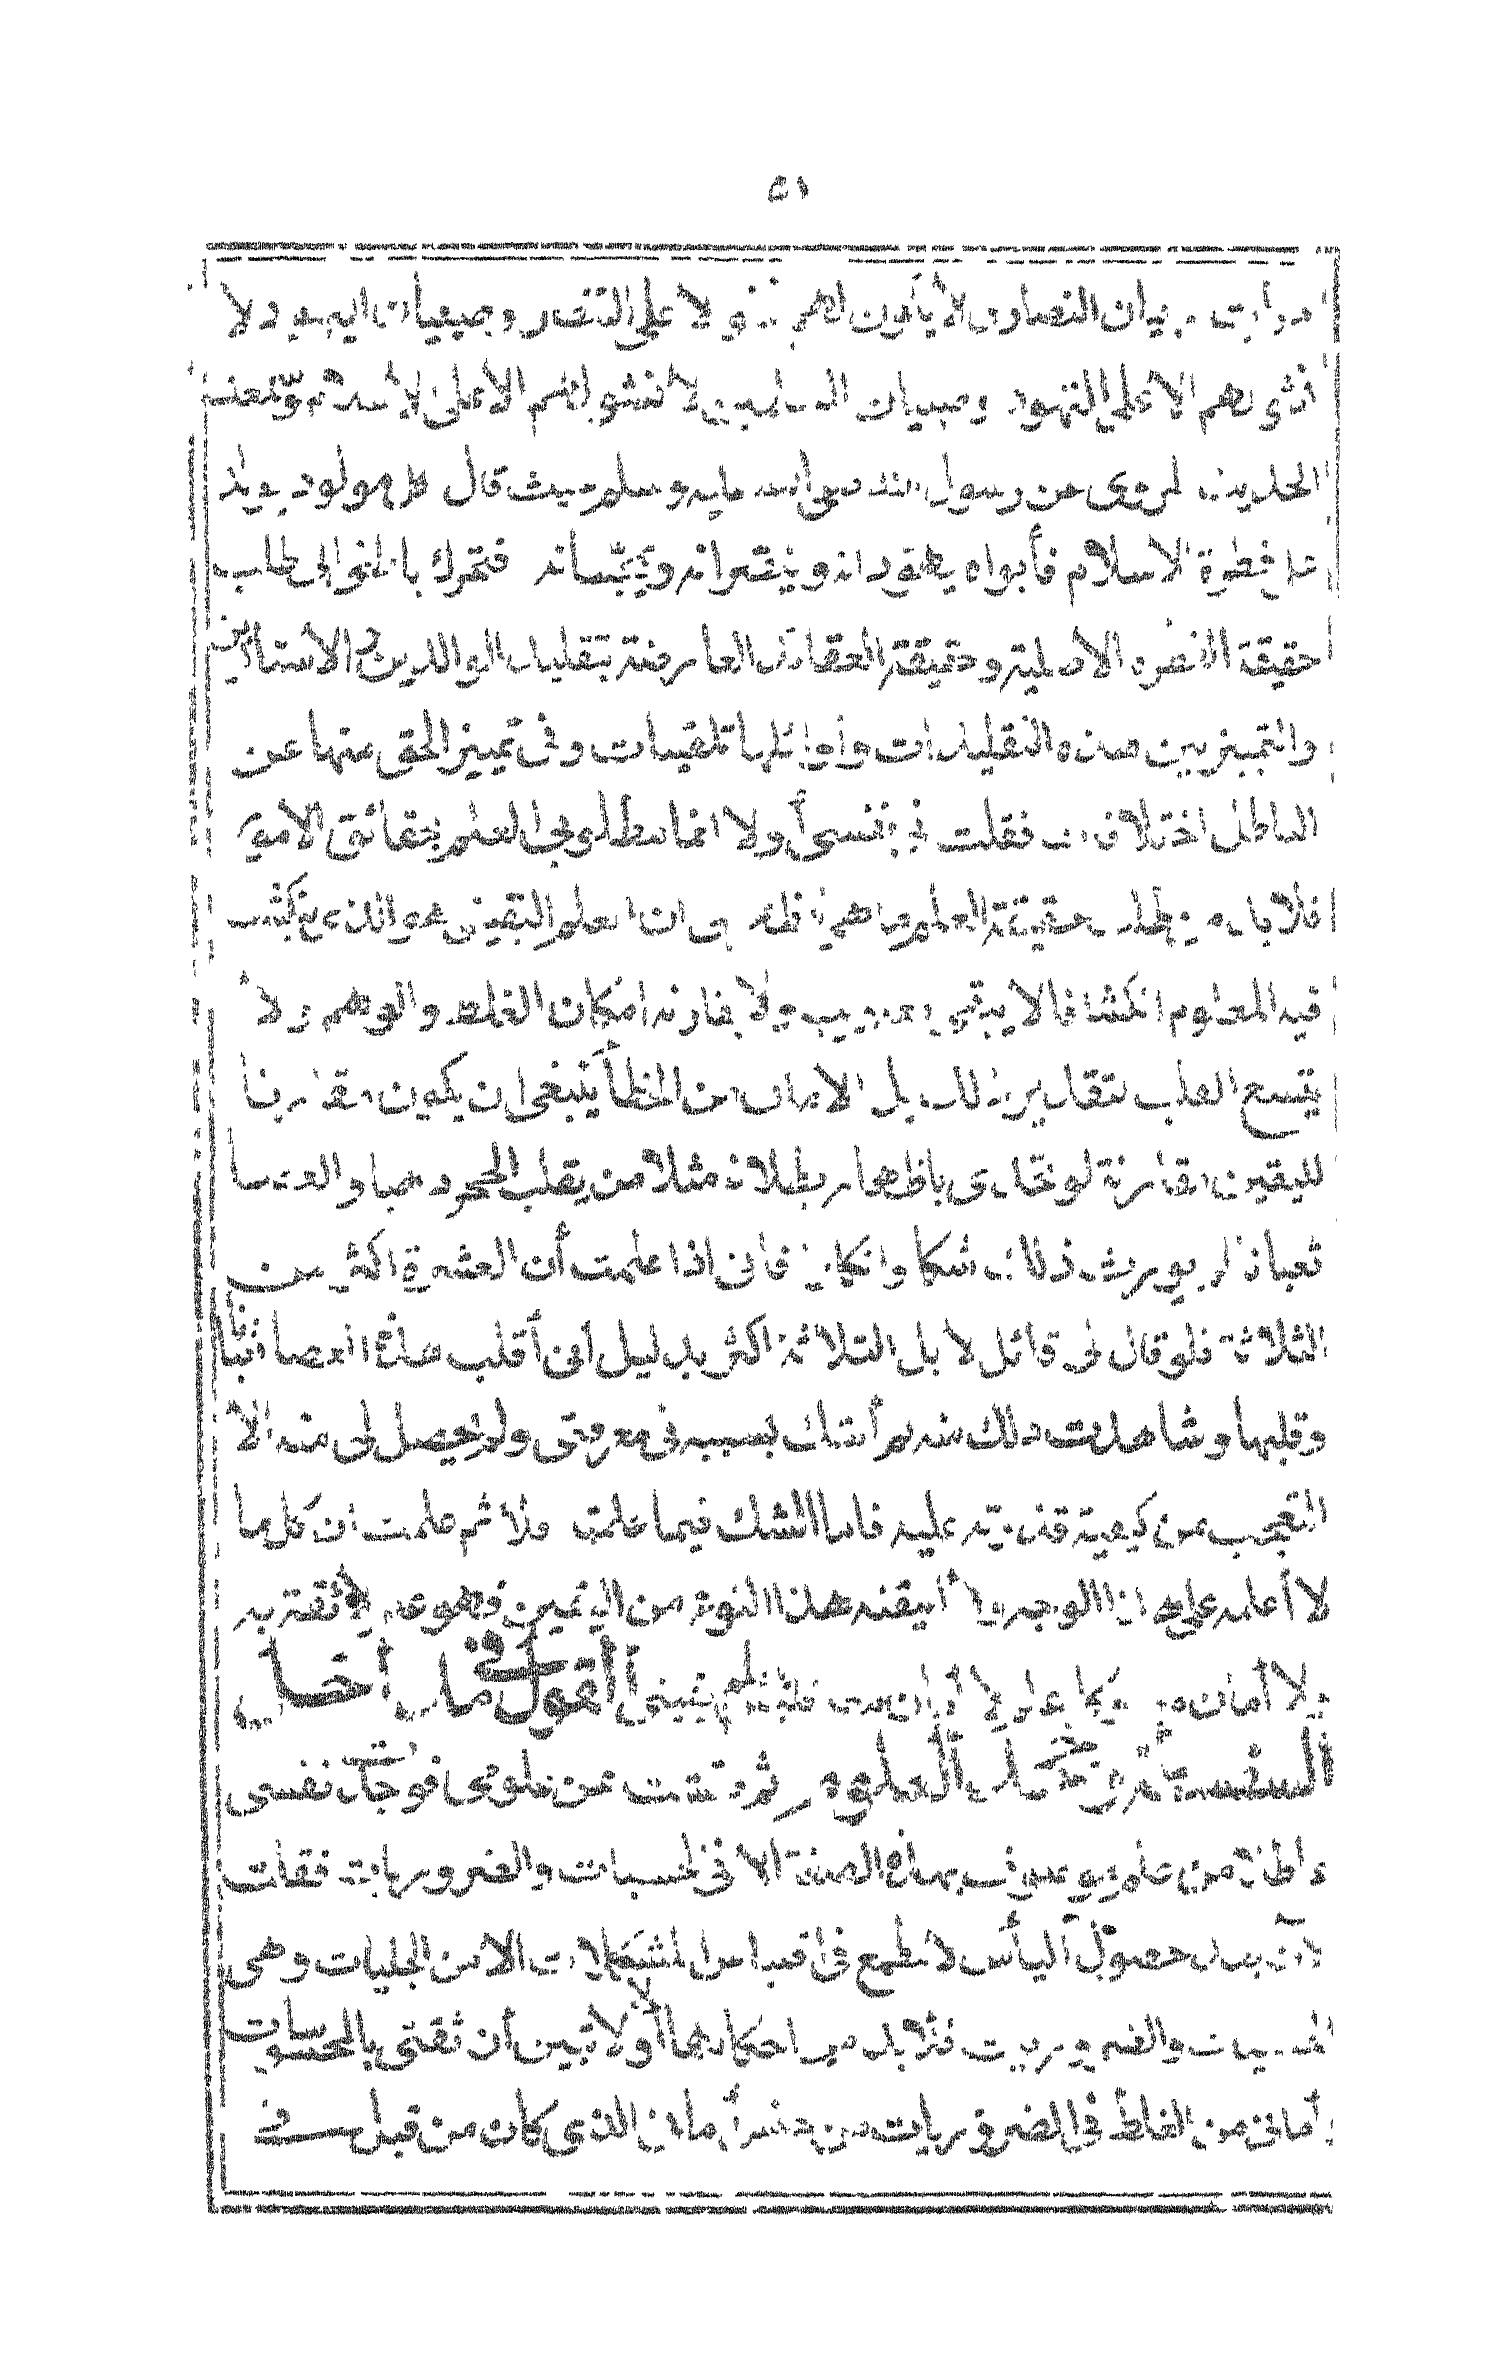 رأيت صبيان النصارى لا يكون لهم نشو الا على التنصر وصبيان اليهود لا
نشوء لهم الا على التهود وصبيان المسلمين لا نشو لهم الا على الاسلام وسمعت
الحديث المروى عن رسول الله صلى الله عليه وسلم حيث قال كل مولود يولد
على فطرة الاسلام فأبواه يهودانه وينصرانه ويمجسانه فتحرك باطنى الى طلب
حقيقة الفطرة الاصلية وحقيقة العقائد العارضة بتقليد الوالدين والاستاذين
والتمييز بين هذه التقليدات وأوائلها تلقينات وفى تمييز الحق منها عن
الباطل اختلافات فقلت فى نفسى أولا انما مطلوبى العلم بحقائق الامور
فلا بد من طلب حقيقة العلم ما هى فظهر لى ان العلم اليقينى هو الذى ينكشف
فيه المعلوم انكشافا لا يبقى معه ريب ولا يقارنه امكان الغلط والوهم ولا
يتسع القلب لتقدير ذلك بل الامان من الخطأ ينبغى ان يكون مقارنا
لليقين مقارنة لو تحدى باظهار بطلانه مثلا من يقلب الحجر ذهبا والعصا
ثعبانا لم يورث ذلك شكا وانكارا فانى اذا علمت أن العشرة اكثر من
الثلاثة فلو قال لى قائل لا بل الثلاثة اكثر بدليل أنى أقلب هذه العصا ثعبانا
وقلبها وشاهدت ذلك منه لم أشك بسببه فى معرفتى ولم يحصل لى منه الا
التعجب من كيفية قدرته عليه فاما الشك فيما علمته فلا ثم علمت ان كل ما
لا أعلمه على هذا الوجه ولا أتيقنه هذا النوع من اليقين فهو علم لا ثقة به
ولا أمان معه وكل علم لا أمان معه فليس بعلم يقينى القول فى مداخل
السفسطة وجحد العلوم ثم فتشت عن علومى فوجدت نفسى
عاطلا من علم موصوف بهذه الصفة الا فى الحسيات والضروريات فقلت
الآن بعد حصول اليأس لا مطمع فى اقتباس المشكلات الا من الجليات وهى
الحسيات والضروريات فلا بد من احكامها أولا لاتبين أن ثقتى بالمحسوسات
وأمانى من الغلط فى الضروريات من جنس أمانى الذى كان من قبل فى